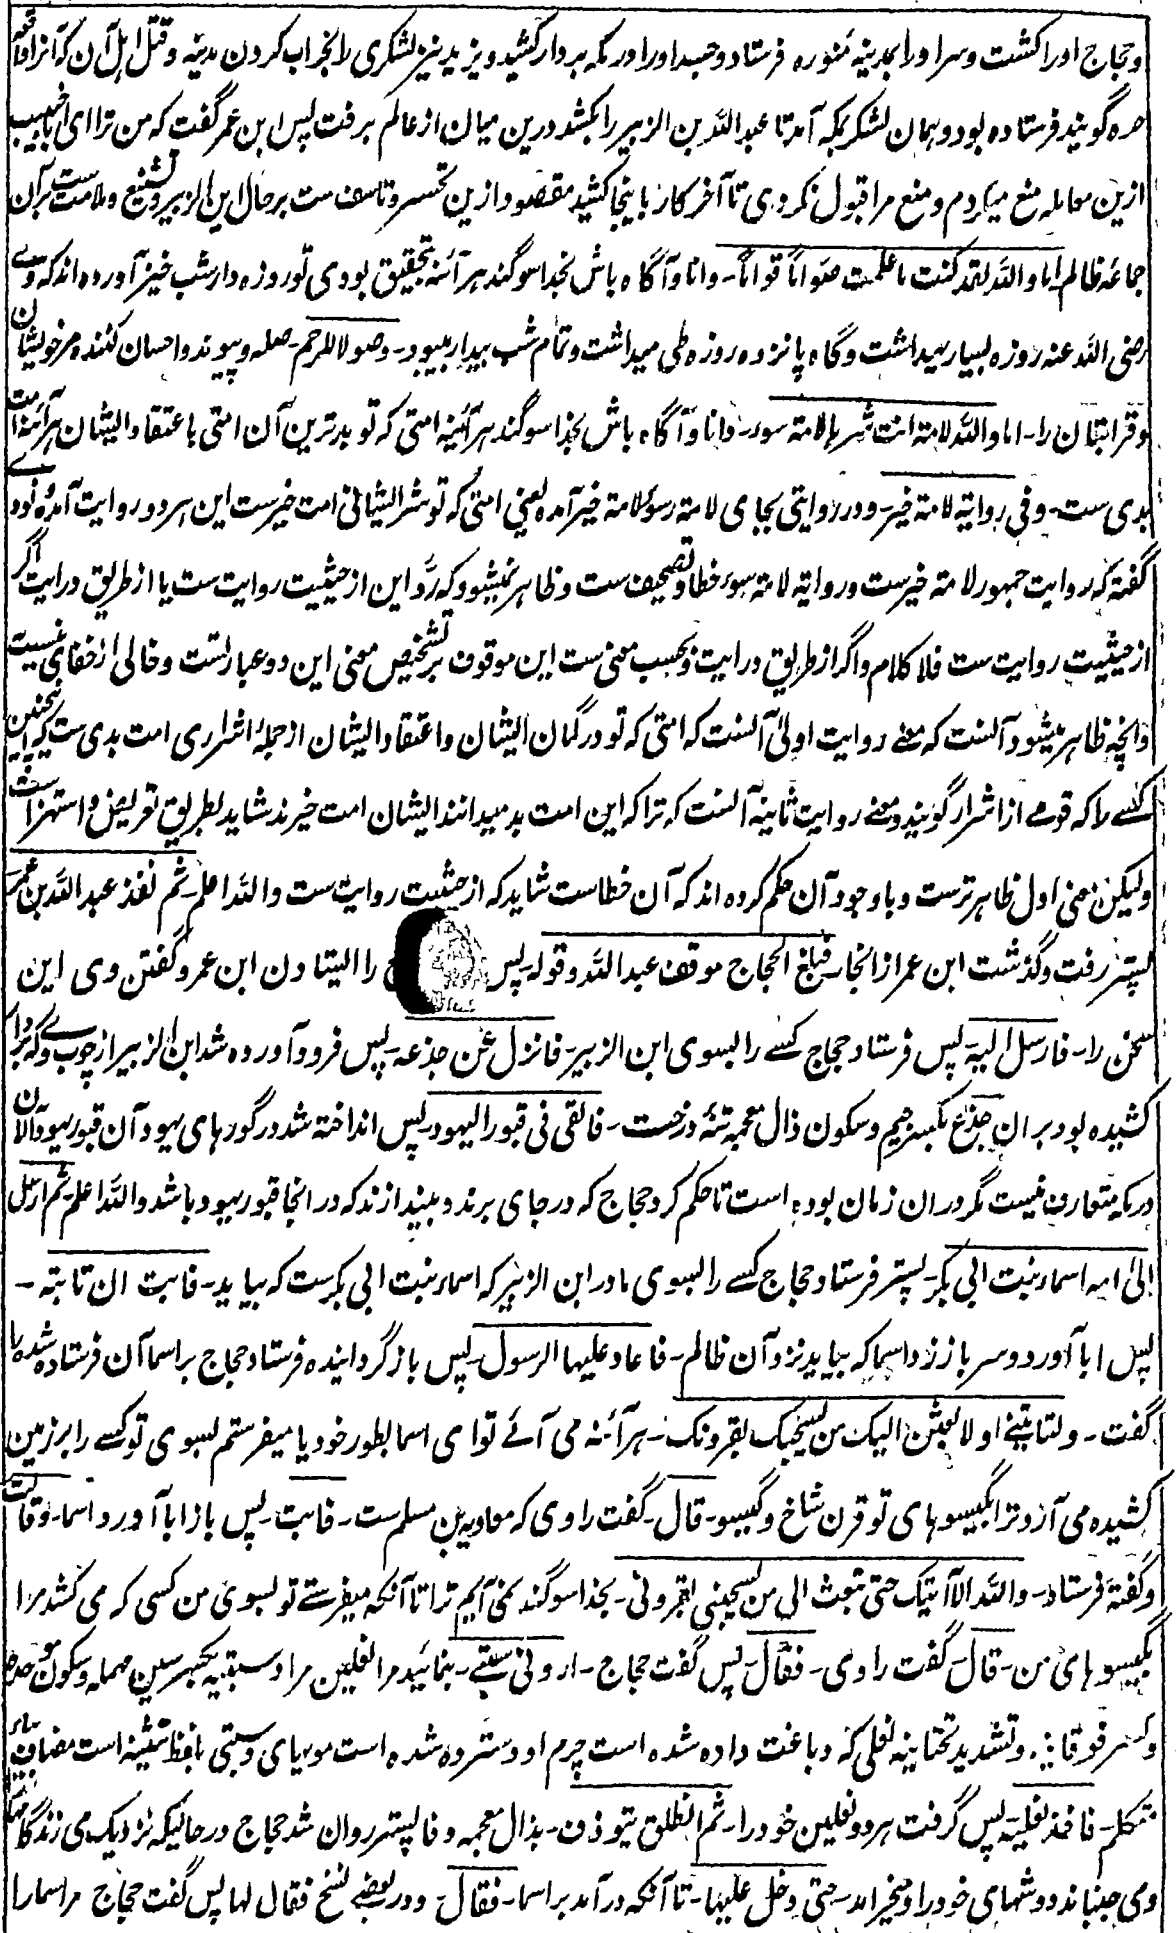 وحجاج او را کشت و سر او را بمدینه منوره فرستاد و جسد او را در مکه بر دار کشید و یزید نیز لشکری را بخراب کردن مدینه و قتل اهل آن که آنرا واقعه
حره گویند فرستاده بود و همان لشکر بمکه آمد تا عبد الله بن الزبیر را بکشد درین میان از عالم برفت پس ابن عمر گفت که من ترا ای ابا خبیب
ازین معامله منع میکردم و منع مرا قبول نکردی تا آخر کار باینجا کشید مقصود ازین تحسر و تاسف ست بر حال ابن الزبیر و تشنیع و ملامت ست بر آن
جماعه ظالم اما والله لقد کنت ما علمت صواما قواما۔ دانا و آگاه باش بخدا سوگند هر آئنه بتحقیق بودی تو روزه دار شب خیز آورده اند که وے
رضی الله عنه روزه بسیار میداشت و گاه پانزده روزه طی میداشت و تمام شب بیدار میبود۔ وصولا للرحم۔ صله و پیوند و احسان کننده مر خویشان
و قرابتان را۔ اما والله لامة انت شرها لامة سوء۔ دانا و آگاه باش بخدا سوگند هر آئینه امتی که تو بدترین آن امتی باعتقاد ایشان هر آئنه امت
بدی ست۔ وفی روایة لامة خیر۔ و در روایتی بجای لامة سوء لامة خیر آمده یعنی امتی که تو شر ایشانی امت خیرست این هر دو روایت آمده نووے
گفته که روایت جمهور لامة خیر ست و روایة لامة سوء خطا و تصحیف ست و ظاهر نمیشود که رد این از حیثیت روایت ست یا از طریق درایت اگر
از حیثیت روایت ست فلا کلام و اگر از طریق درایت و بحسب معنی ست این موقوف بر تشخیص معنی این دو عبارتست و خالی از خفای نیست
وانچه ظاهر میشود آنست که معنے روایت اولی آنست که امتی که تو در گمان ایشان و اعتقاد ایشان از جمله اشراری امت بدی ست که اینچنین
کسے را که قومے از اشرار گویند و معنے روایت ثانیه آنست که ترا که این امت بد میدانند ایشان امت خیرند شاید بطریق تعریض و استهزا ست
ولیکن معنی اول ظاهر ترست و با وجود آن حکم کرده اند که آن خطاست شاید که از حیثیت روایت ست والله اعلم۔ ثم نفذ عبد الله بن عمر
پستر رفت و گذشت ابن عمر از انجا۔ فبلغ الحجاج موقف عبد الله وقوله۔ پس را ایستادن ابن عمر و گفتن وی این
سخن را۔ فارسل الیه۔ پس فرستاد حجاج کسے را بسوی ابن الزبیر۔ فانزل عن جذعه۔ پس فرود آورده شد ابن الزبیر از چوبے که بردار
کشیده بود بران جذع بکسر جیم و سکون ذال معجمه تنه درخت۔ فالقی فی قبور الیهود۔ پس انداخته شد در گورهای یهود آن قبور یهود الان
در مکه متعارف نیست مگر دران زمان بوده است تا حکم کرد حجاج که در جای برند و بیندازند که در انجا قبور یهود باشد والله اعلم۔ ثم ارسل
الی امه اسماء بنت ابی بکر۔ پستر فرستاد حجاج کسے را بسوی مادر ابن الزبیر که اسماء بنت ابی بکرست که بیاید۔ فابت ان تاتیه۔
پس ابا آورد و سر باز زد اسما که بیاید نزد آن ظالم۔ فاعاد علیها الرسول۔ پس باز گرداینده فرستاد حجاج بر اسما آن فرستاده شده را
گفت۔ ولتاتینے او لابعثن الیک من یسحبک بقرونک۔ هر آئنه می آئے تو ای اسما بطور خود یا میفرستم بسوی تو کسے را بر زمین
کشیده می آرد ترا بگیسوهای تو قرن شاخ و گیسو۔ قال۔ گفت راوی که معاویه بن مسلم ست۔ فابت۔ پس باز ابا آورد اسما۔ وقالت
و گفته فرستاد۔ والله لا آتیک حتی تبعث الی من یسحبنی بقرونی۔ بخدا سوگند نمی آیم ترا تا آنکه میفرستے تو بسوی من کسی که می کشد مرا
بگیسوهای من۔ قال۔ گفت راوی۔ فقال۔ پس گفت حجاج۔ ارونی سبتے۔ بنمائید مرا نعلین مرا و سبتیه بکسر سین مهمله و سکون موحده
و کسر فوقانیه و تشدید تحتانیه نعلی که دباغت داده شده است چرم او و سترده شده است مویهای و سبتی بلفظ تثنیه است مضاف بیاء
متکلم۔ فاخذ نعلیه۔ پس گرفت هر دو نعلین خود را۔ ثم انطلق یتوذف۔ بذال معجمه و فا پستر روان شد حجاج در حالیکه نزدیک می زند گامها
و می جنباند دوشهای خود را و میخرامد۔ حتی دخل علیها۔ تا آنکه در آمد بر اسما۔ فقال۔ و در بعضے نسخ فقال لها پس گفت حجاج مر اسما را